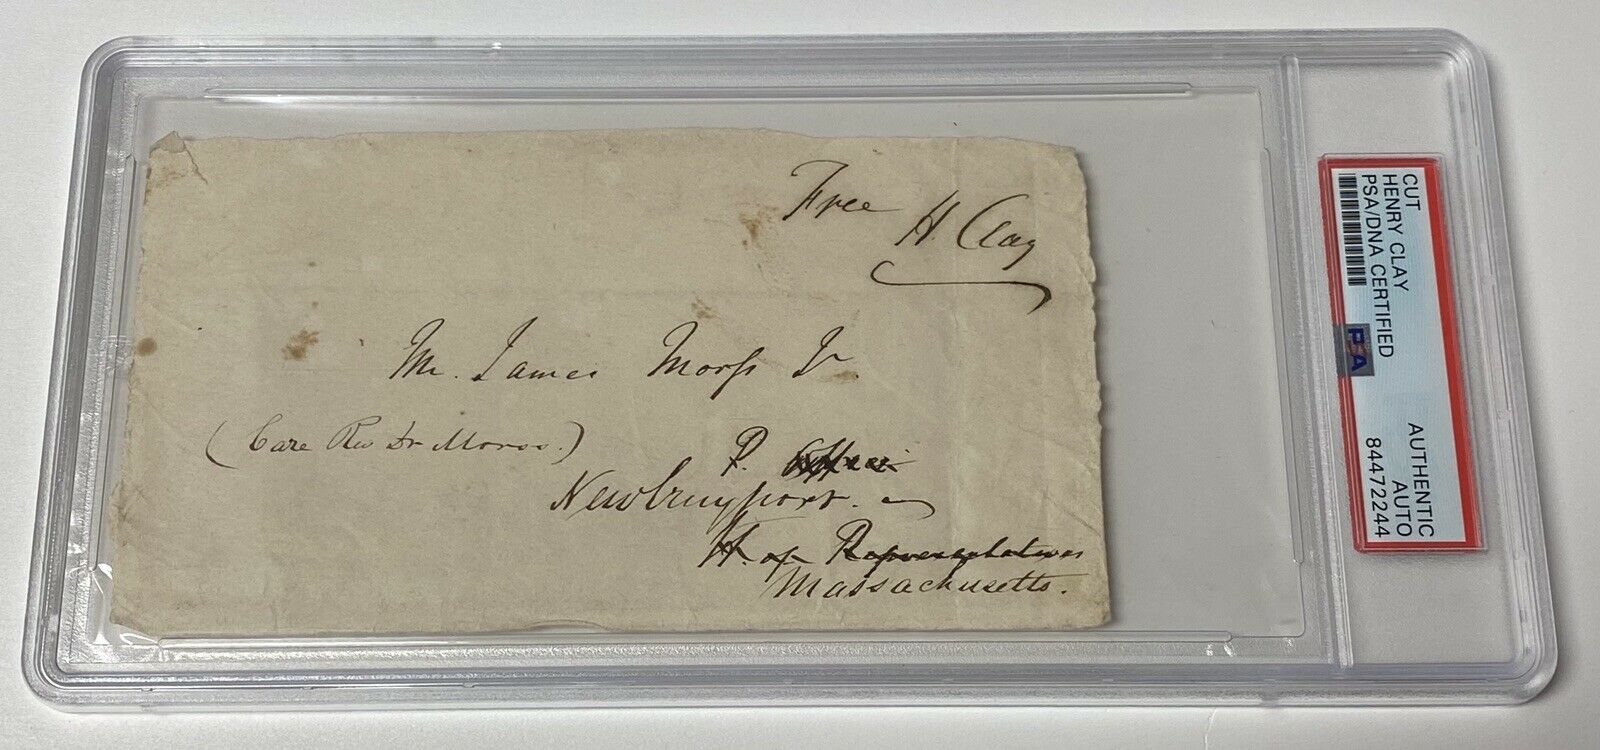 Free H. Clay
Mr. James Morss Jr.
(Care Rev Dr Morss.)
P. Office
Newburyport.
H. of Representatives
Massachusetts.
CUT
HENRY CLAY
PSA/DNA CERTIFIED
PSA
AUTHENTIC
AUTO
84472244